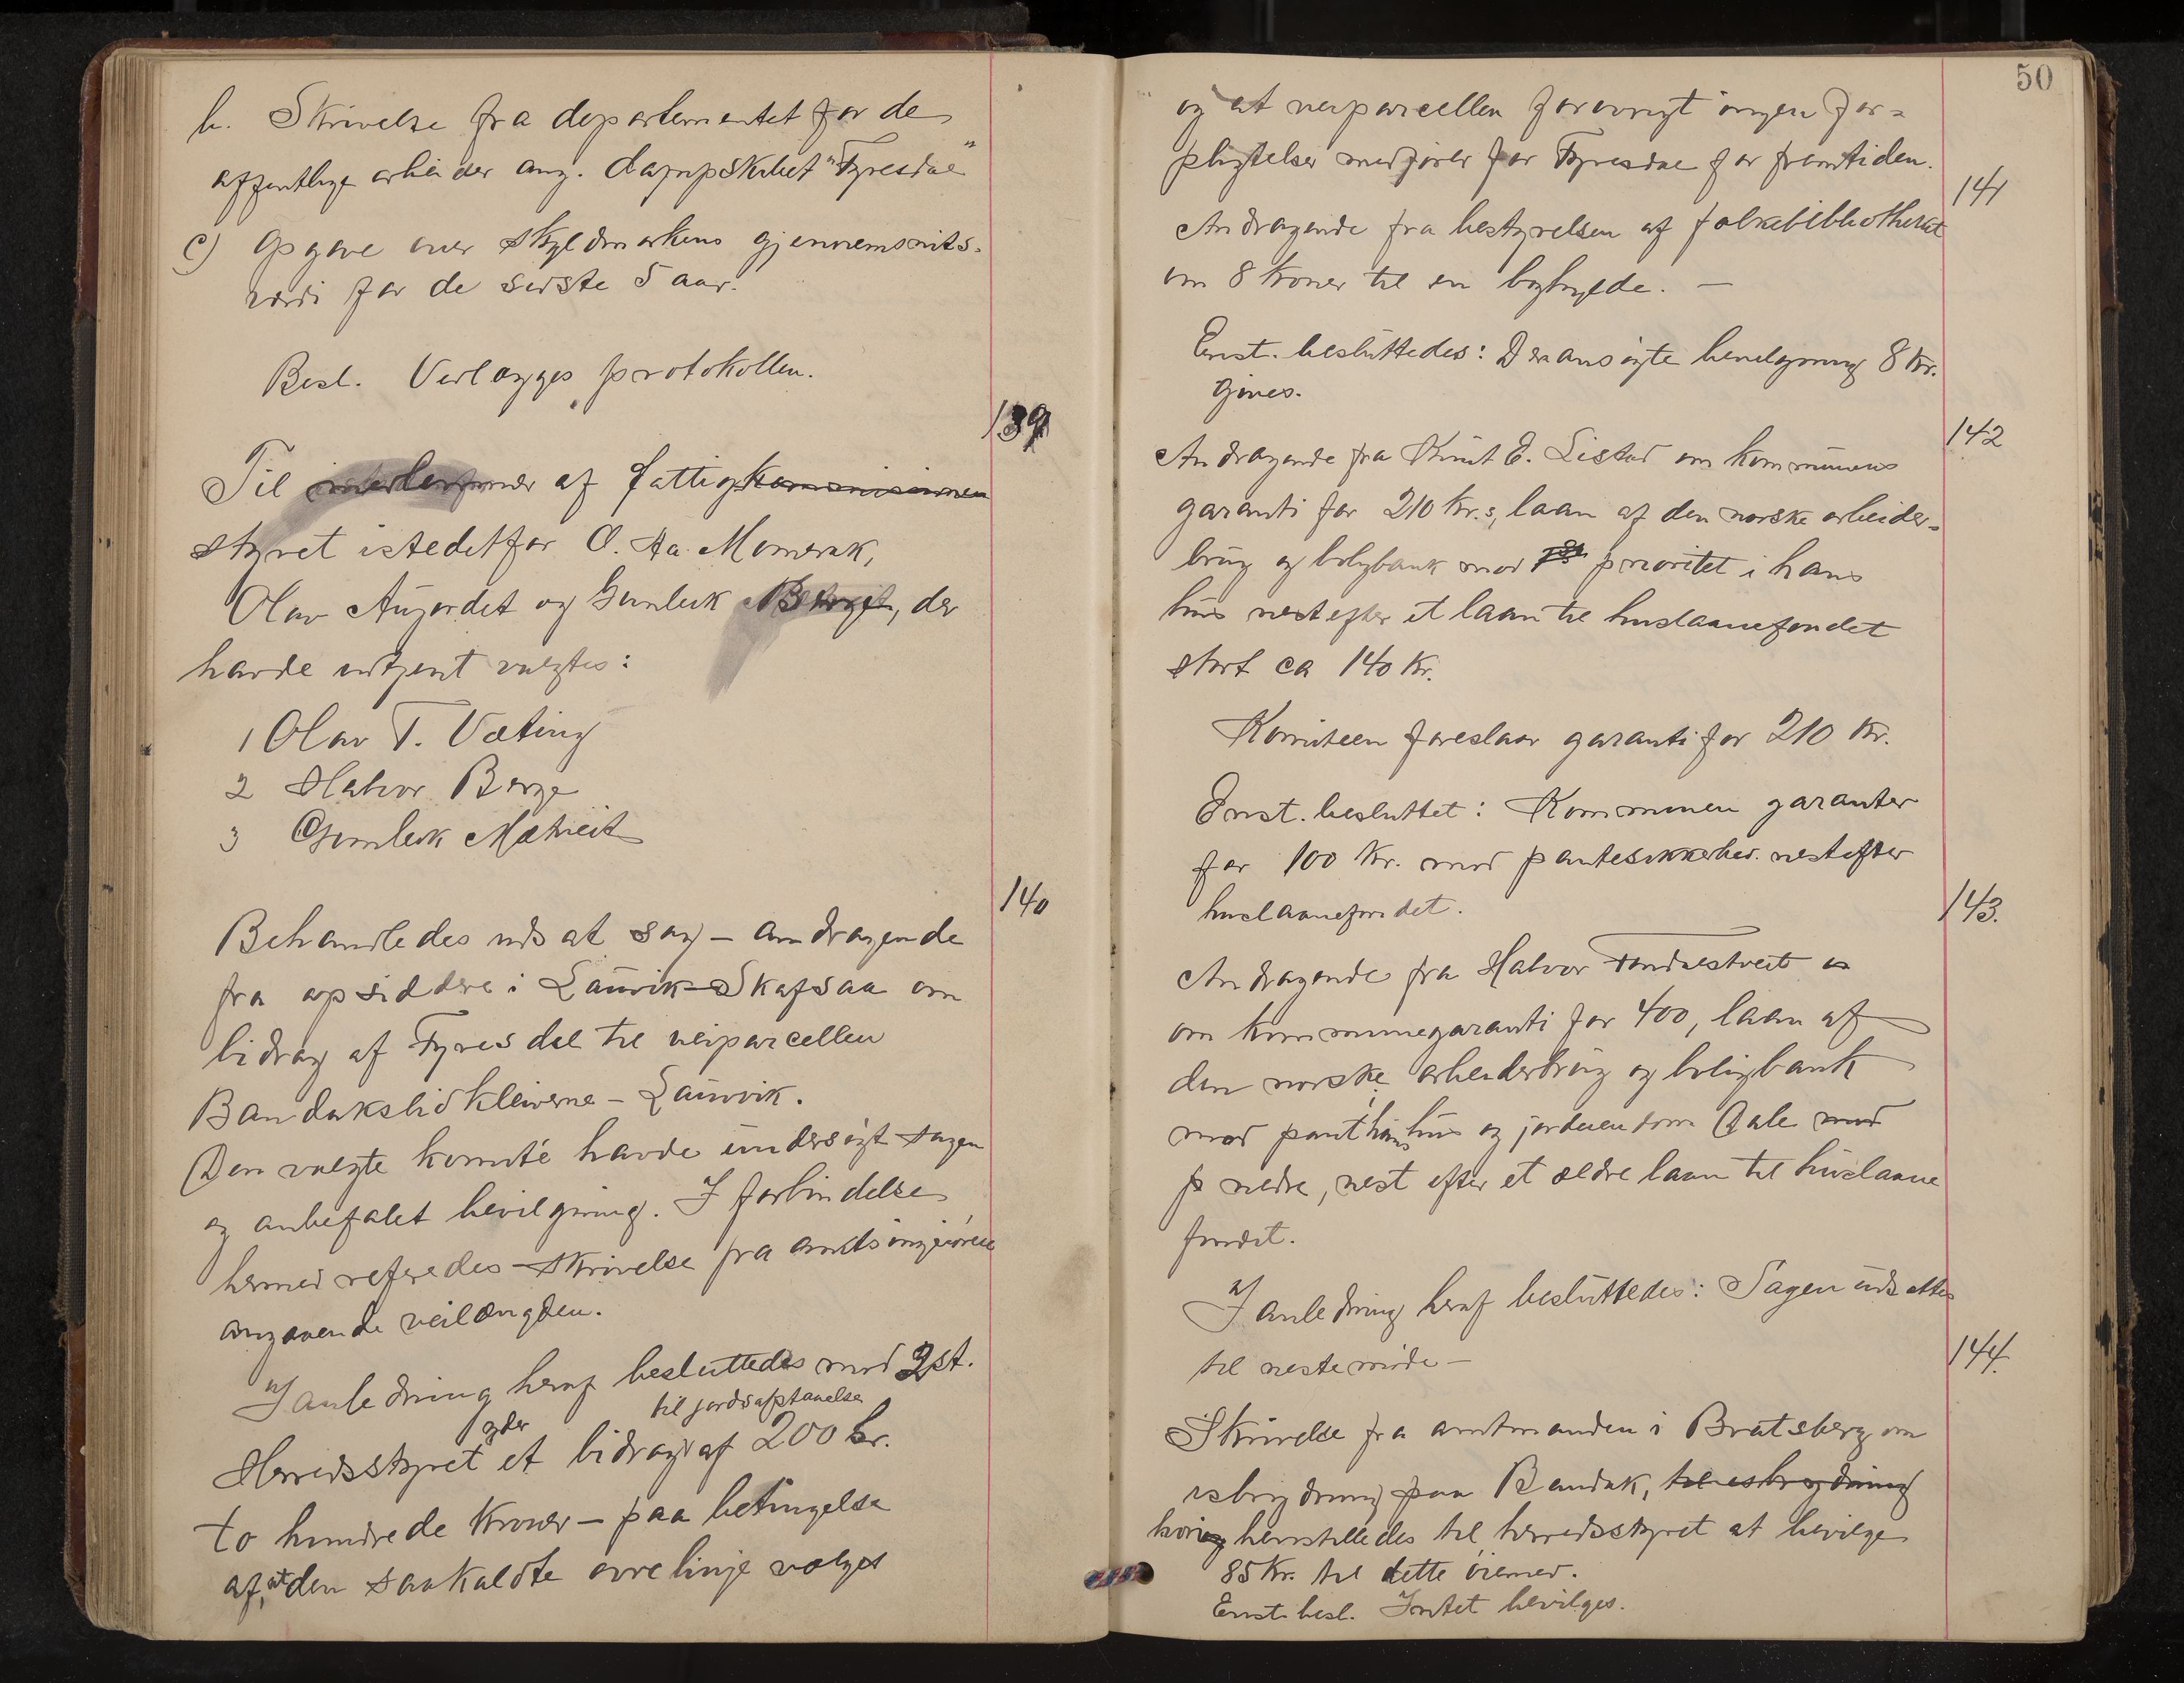 b. Skrivelse fra departementet for de
offentlige arbeider ang. dampskibet "Fyresdøl"
c) Opgave over skyldmarkens gjennemsnits-
værdi for de sidste 5 aar.
Besl. Vedlægges protokollen.
139
Til medlemmer af fattigkommisionen
styret istedetfor O. Aa. Momrak,
Olav Aujordet og Gunleik, der
havde udtjent valgtes:
1 Olav T. Væting
2 Halvor Berge
3 Gunleik Mætveit
140
Behandledes uds at sag – andragende
fra opsiddere i Lauvik-Skafsaa om
bidrag af Fyresdal til veiparcellen
Bandakslidkleiverne – Lauvvik.
Den valgte komité havde undersøgt sagen
og anbefalet bevilgning. I forbindelse
hermed referedes skrivelse fra amtsingeniøren
angaaende veilængden.
I anledning heraf besluttedes mod 2 st.
yder til jordafstaaelse
Herredsstyret et bidrag af 200 kr.
to hundrede kroner – paa betingelse
af, at den saakaldte øvre linje vælges
50
og at veiparcellen forøvrigt ingen for=
pligtelser medfører for Fyresdal for fremtiden.
141
Andragende fra bestyrelsen af folkebibliotheket
om 8 kroner til en boghylde. –
Enst. besluttedes: Den ansøgte bevilgning 8 kr.
gives.
142
Andragende fra Knut E. Listad om kommunens
garanti for 210 kr.s, laan af den norske arbeider=
brug og boligbank mod prioritet i hans
hus næstefter et laan til huslaanefondet
stort ca 140 kr.
Komiteen foreslaar garanti for 210 kr.
Enst. besluttet: Kommunen garanter
for 100 kr. mod pantesikkerhed. næstefter
huslaanefondet.
143.
Andragende fra Halvor
om kommunegaranti for 400, laan af
den norske arbeiderbrug og boligbank
mod pant i hans hus og jordeiendom Dale med
p nedre, næst efter et ældre laan til huslaane
fondet.
I anledning heraf besluttedes: Sagen udsættes
til næste møde –
144.
Skrivelse fra amtmanden i Bratsberg om
isbrydning paa Bandak, til isbrydning
hvori henstilledes til herredsstyret at bevilge
85 kr. til dette øiemed.
Enst. besl. Intet bevilges.